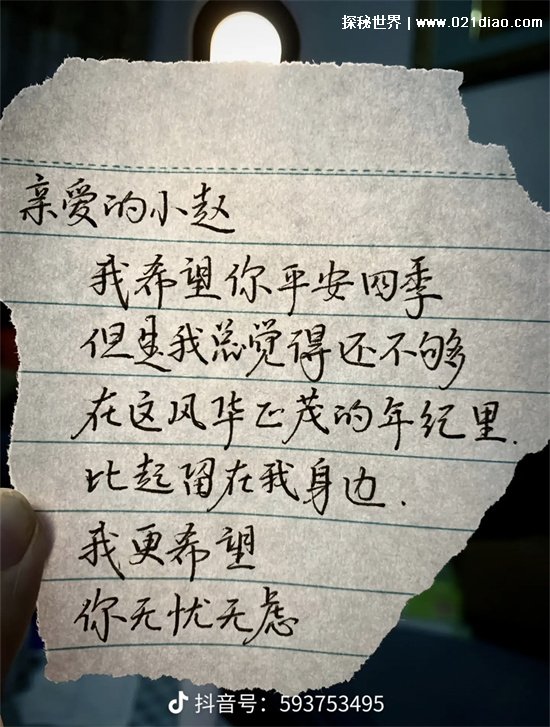 探秘世界 | www.021diao.com
亲爱的小赵
我希望你平安四季
但是我总觉得还不够
在这风华正茂的年纪里.
比起留在我身边.
我更希望
你无忧无虑
抖音号：593753495